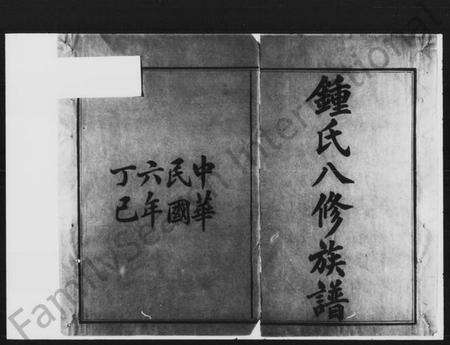 鍾氏八修族譜
中華
民國
六年
丁巳
FamilySearch International